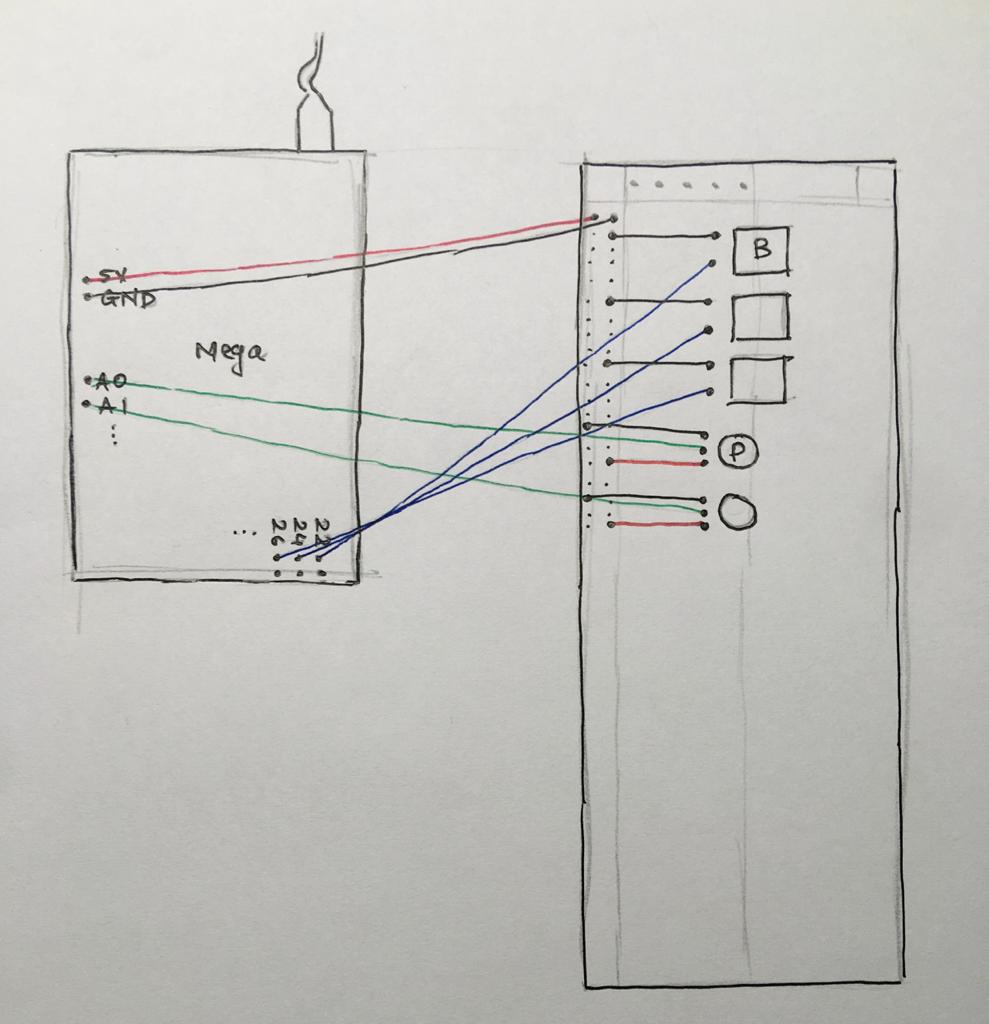 B
5V
GND
Mega
A0
A1
P
26 24 22